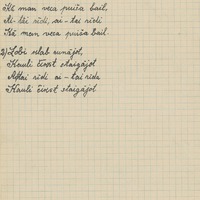 Kā man veca puiša bail,
Ai-tāi rīdi, ai-tai rīdi
Kā man veca puiša bail.
2) Labi stāb runājot,
Kauli čirkst staigājot
Aitai rīdi ai-tai rīdi
Kauli čirkst staigājot